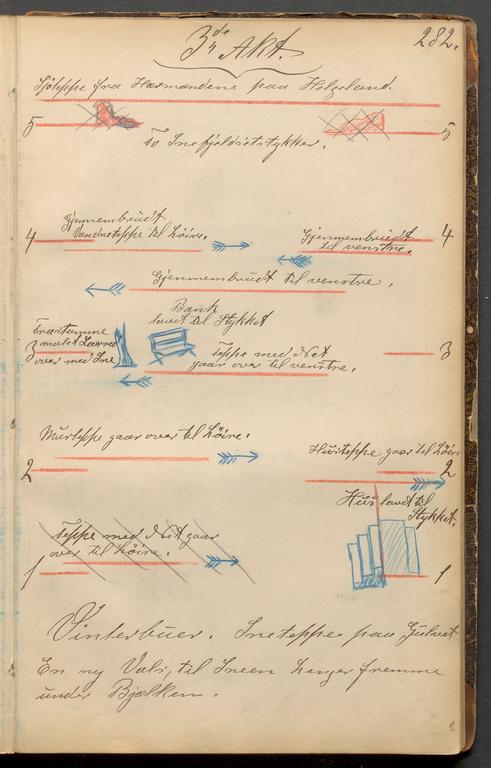 282.
3de Akt.
Søteppe fra Hærmændene paa Helgeland.
5 5
To Snefjeldsætstykker.
4 Gjennembrudt
Vandreteppe til höire.
Gjennembrudt 4
til venstre.
Gjennembrudt til venstre.
Bænk
lavet til Stykket
Træstamme
malet Lærred
3 over med Sne
Teppe med Net 3
gaar over til venstre.
Murteppe gaar over til höire.
2
Husteppe gaar til höire
2
Hus lavet til
Stykket.
Teppe med Net gaar
over til höire.
1 1
Vinterbuer. Sneteppe paa Gulvet
En ny Vals, til Sneen henger fremme
under Bjælken.